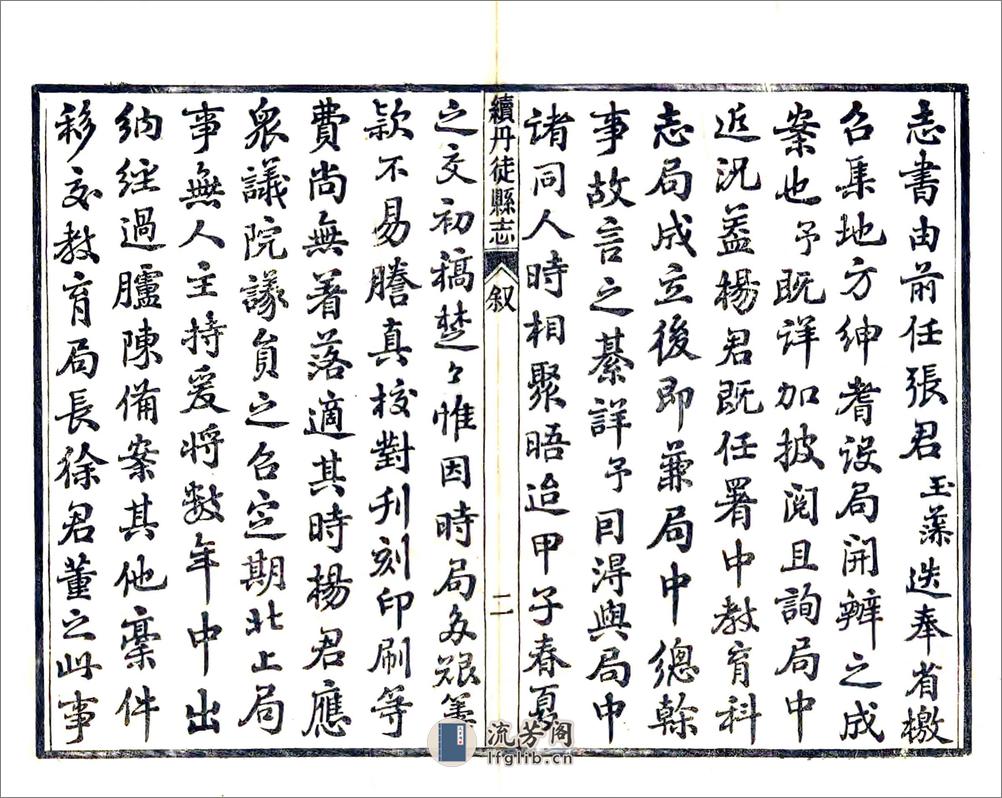 志書由前任張君玉藻迭奉省檄
召集地方紳耆設局開辦之成
案也予既詳加披閱且詢局中
近況蓋楊君既任署中教育科
志局成立後即兼局中總幹
事故言之綦詳予因得與局中
諸同人時相聚晤迨甲子春夏
續丹徒縣志 叙 二
之交初稿楚々惟因時局多艱籌
款不易謄真校對刊刻印刷等
費尚無着落適其時楊君應
眾議院議員之召定期北上局
事無人主持爰將數年中出
納經過臚陳備案其他稾件
移交教育局長徐君董之此事
流芳阁
lfglib.cn